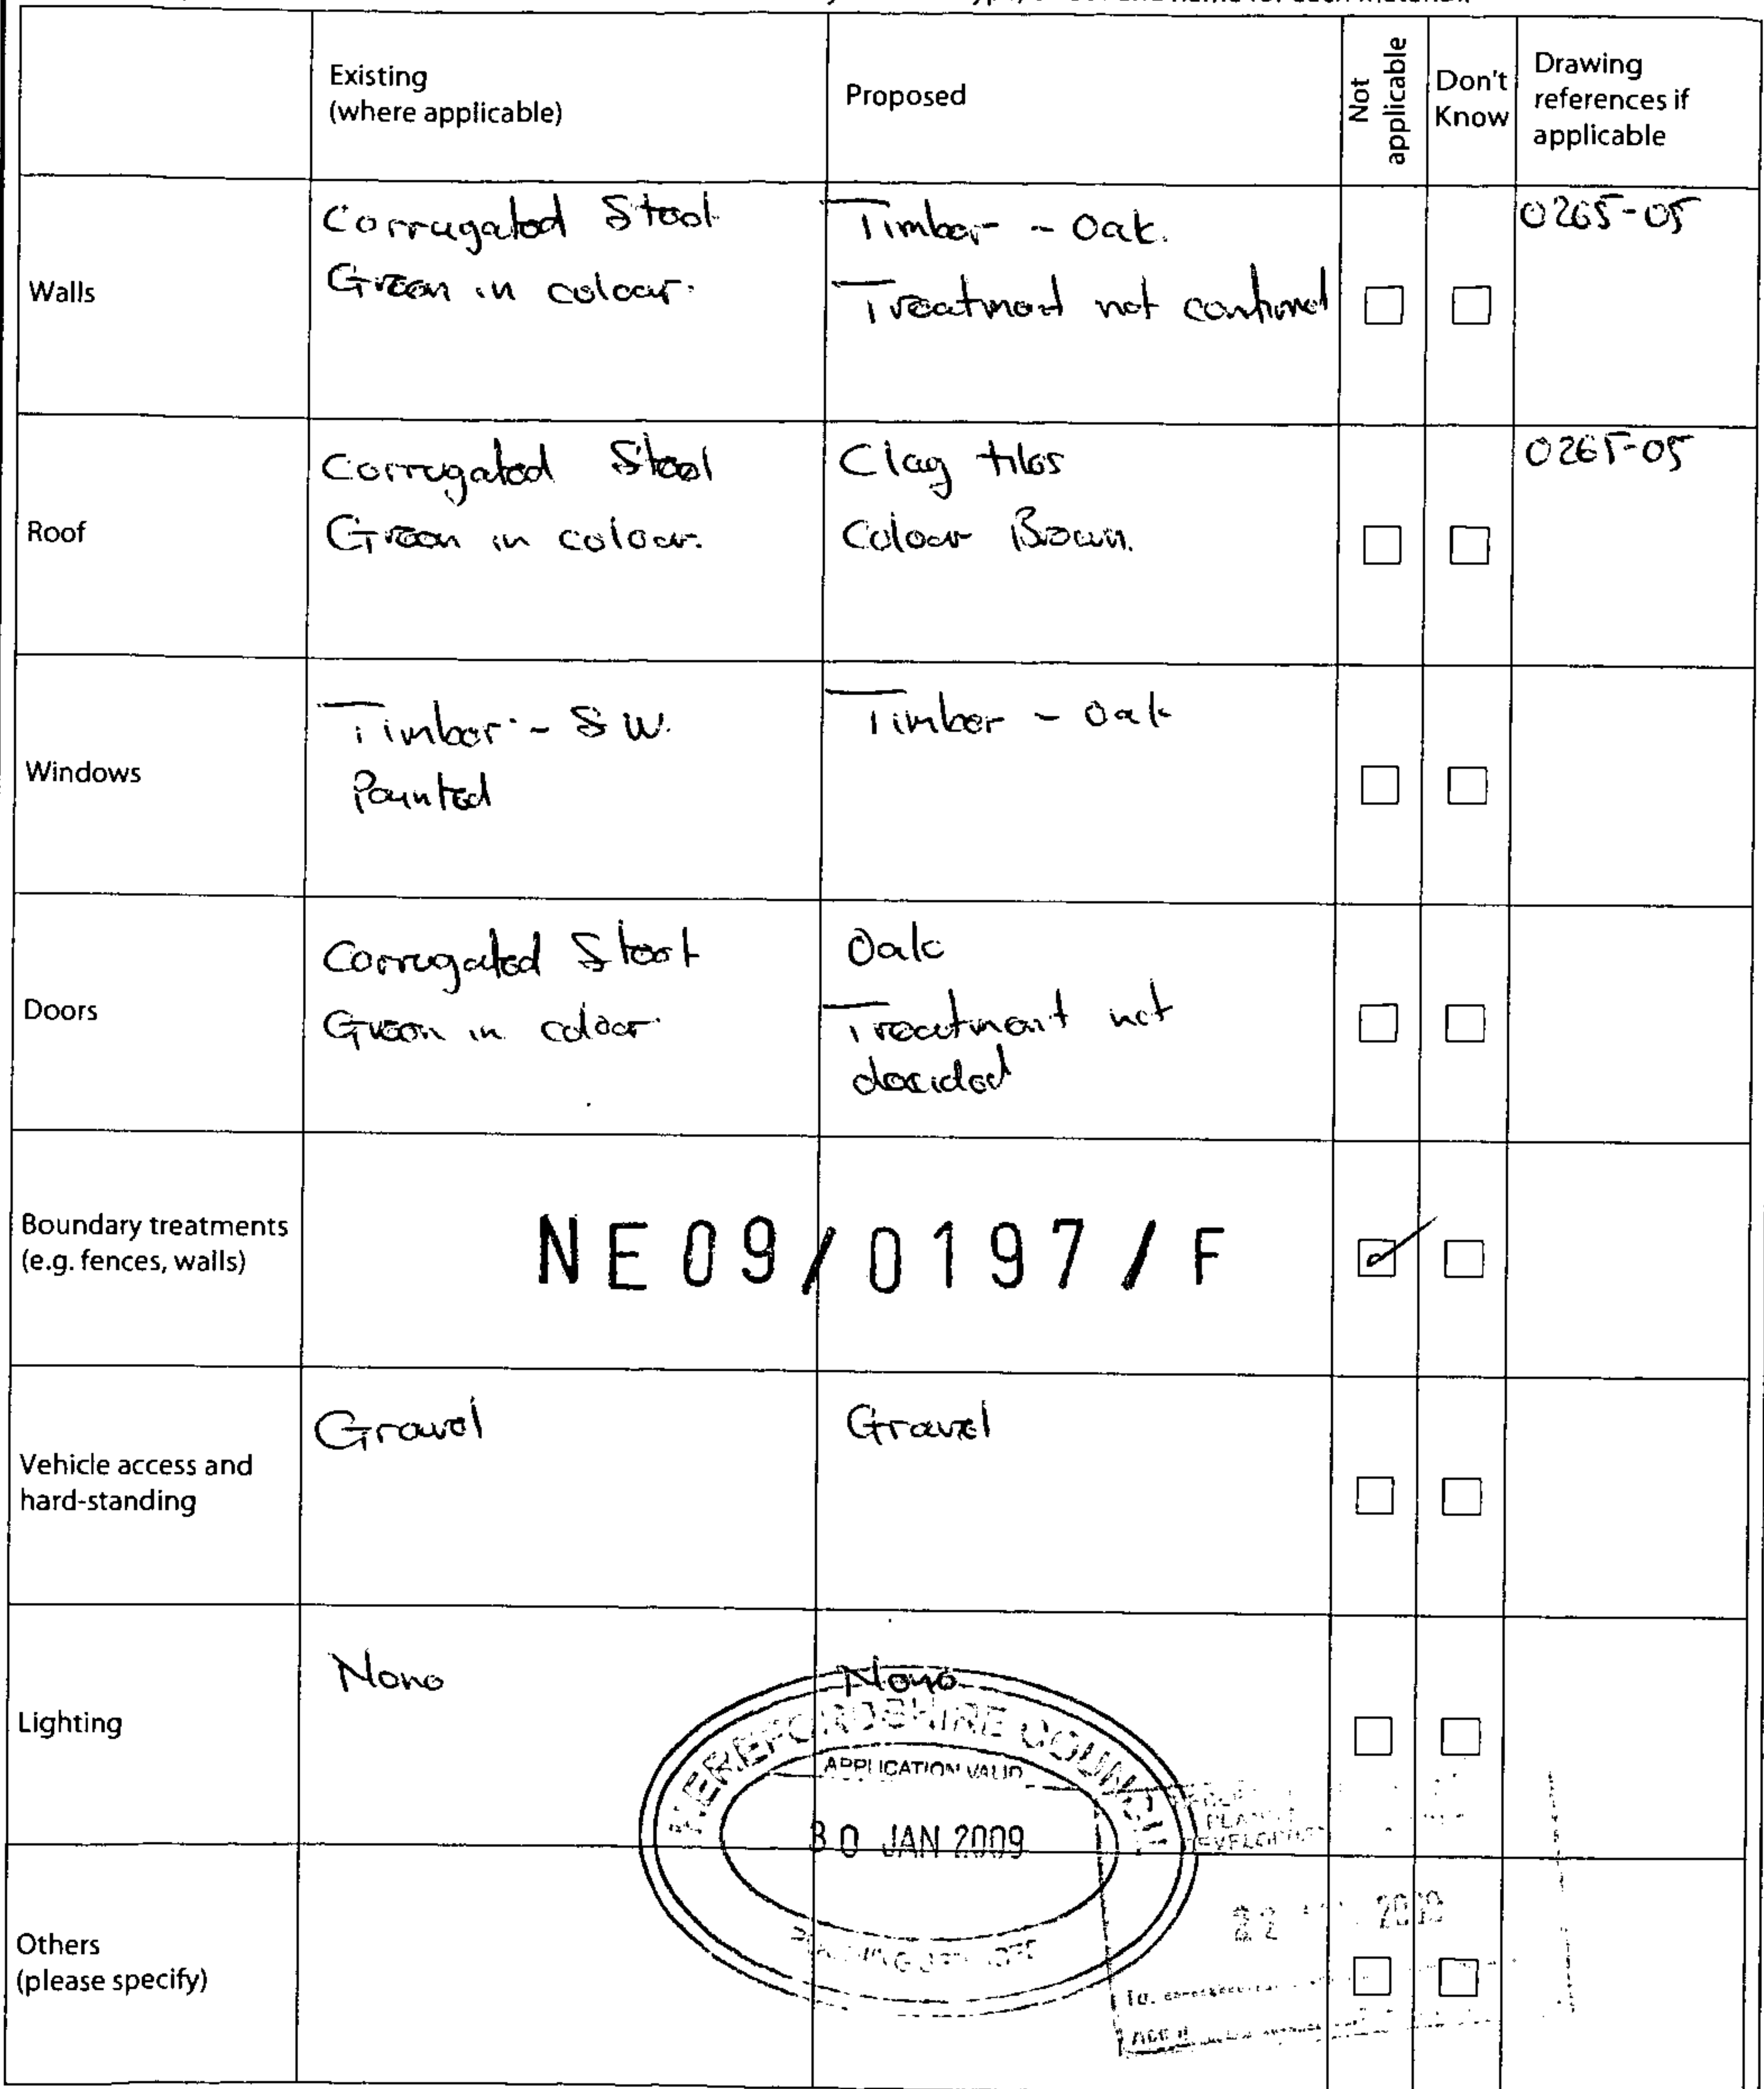 Existing
(where applicable)
Proposed
Not
applicable
Don't
Know
Drawing
references if
applicable
Walls
Corrugated Steel
Green in colour.
Timber - Oak.
Treatment not confirmed
0265-05
Roof
Corrugated Steel
Green in colour.
Clay tiles
Colour Brown.
0265-05
Windows
Timber - SW.
Painted
Timber - Oak
Doors
Corrugated Steel
Green in colour.
Oak
Treatment not
decided
Boundary treatments
(e.g. fences, walls)
NE09/0197/F
Vehicle access and
hard-standing
Gravel
Gravel
Lighting
None
None
HEREFORDSHIRE COUNCIL
APPLICATION VALID
30 JAN 2009
22 2009
To.
Others
(please specify)